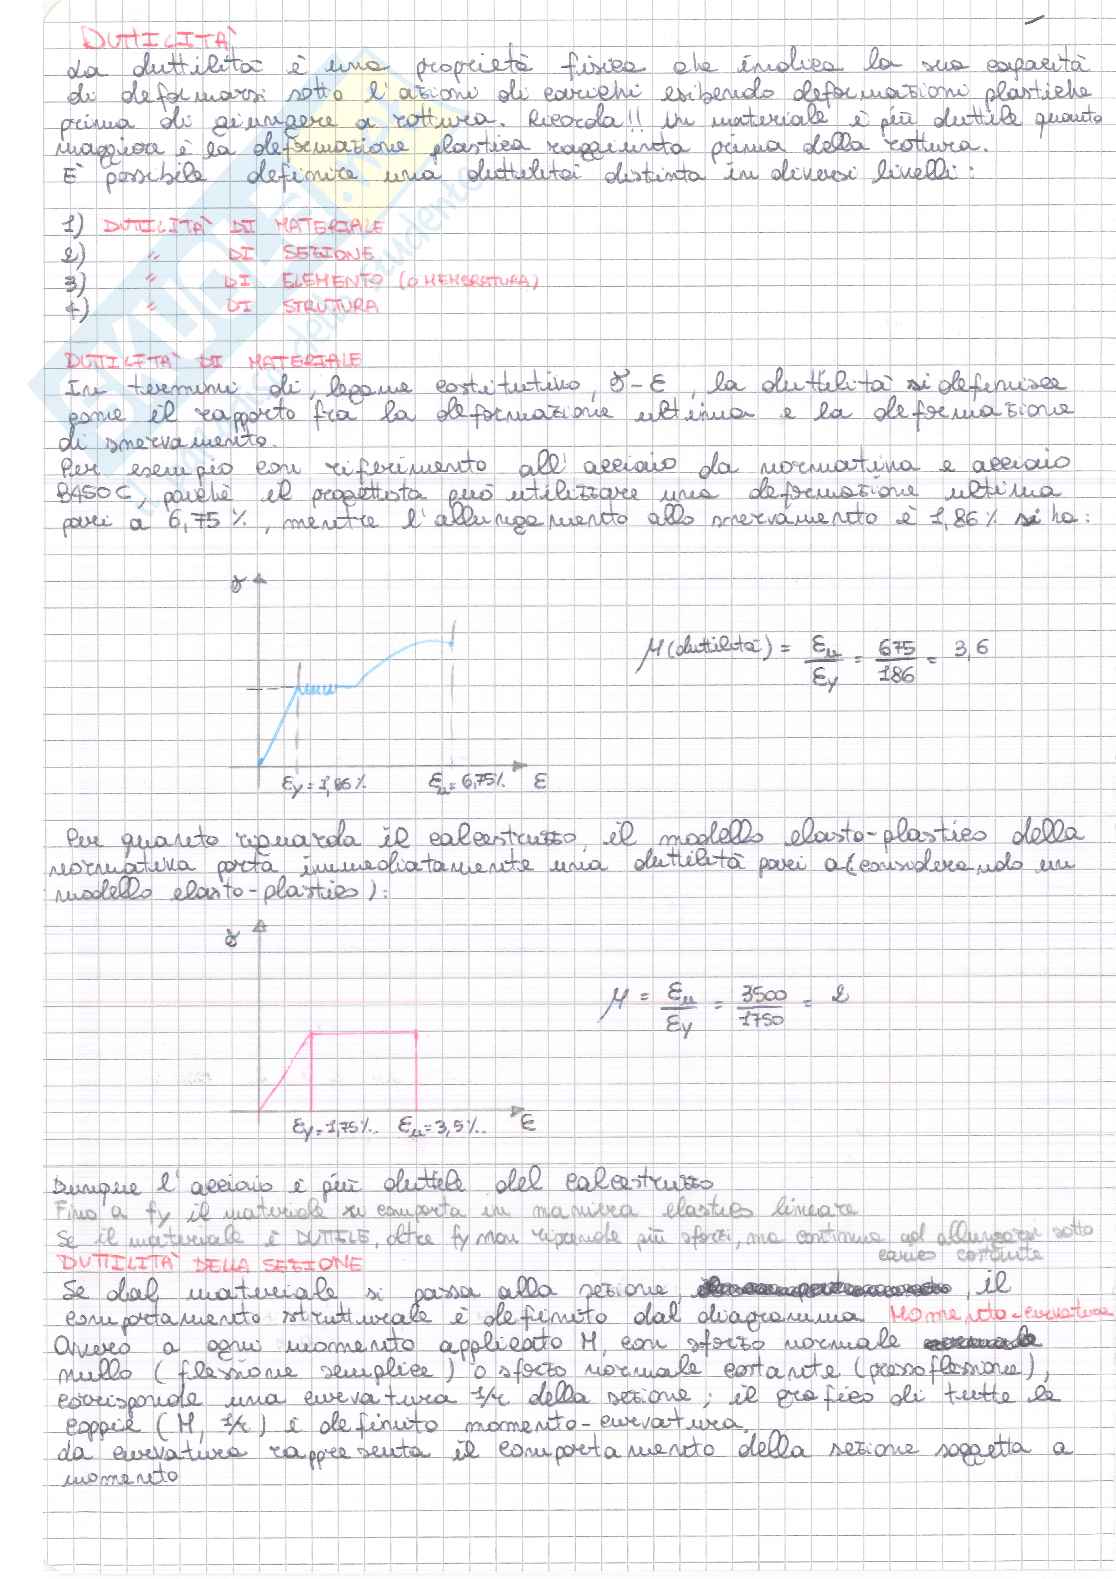 DUTTILITÀ
La duttilità è una proprietà fisica che indica la sua capacità
di deformarsi sotto l'azioni di carichi esibendo deformazioni plastiche
prima di giungere a rottura. Ricorda!! Un materiale è più duttile quanto
maggiore è la deformazione plastica raggiunta prima della rottura.
È possibile definire una duttilità distinta in diversi livelli:
1) DUTTILITÀ DI MATERIALE
2) " DI SEZIONE
3) " DI ELEMENTO (O MEMBRATURA)
4) " DI STRUTURA
DUTTILITÀ DI MATERIALE
In termini di legame costitutivo, σ-ε, la duttilità si definisce
come il rapporto fra la deformazione ultima e la deformazione
di snervamento.
Per esempio con riferimento all'acciaio da normativa e acciaio
B450C, poichè il progettista può utilizzare una deformazione ultima
pari a 6,75%, mentre l'allungamento allo snervamento è 1,86% si ha:
σ
μ(duttilità) = εu/εy = 675/186 = 3,6
εy=1,86% εu=6,75% ε
Per quanto riguarda il calcestruzzo, il modello elasto-plastico della
normativa porta immediatamente una duttilità pari a (considerando un
modello elasto-plastico):
σ
μ = εu/εy = 3500/1750 = 2
εy=1,75%.. εu=3,5%.. ε
Dunque l'acciaio è più duttile del calcestruzzo
Fino a fy il materiale si comporta in maniera elastico lineare
Se il materiale è DUTTILE, oltre fy non riprende più sforzi, ma continua ad allungarsi sotto
carico costante
DUTTILITÀ DELLA SEZIONE
Se dal materiale si passa alla sezione, il
comportamento strutturale è definito dal diagramma Momento-curvatura
Ovvero a ogni momento applicato M, con sforzo normale
nullo (flessione semplice) o sforzo normale costante (pressoflessione),
corrisponde una curvatura 1/r della sezione; il grafico di tutte le
coppie (M, 1/r) è definito momento-curvatura.
La curvatura rappresenta il comportamento della sezione soggetta a
momento